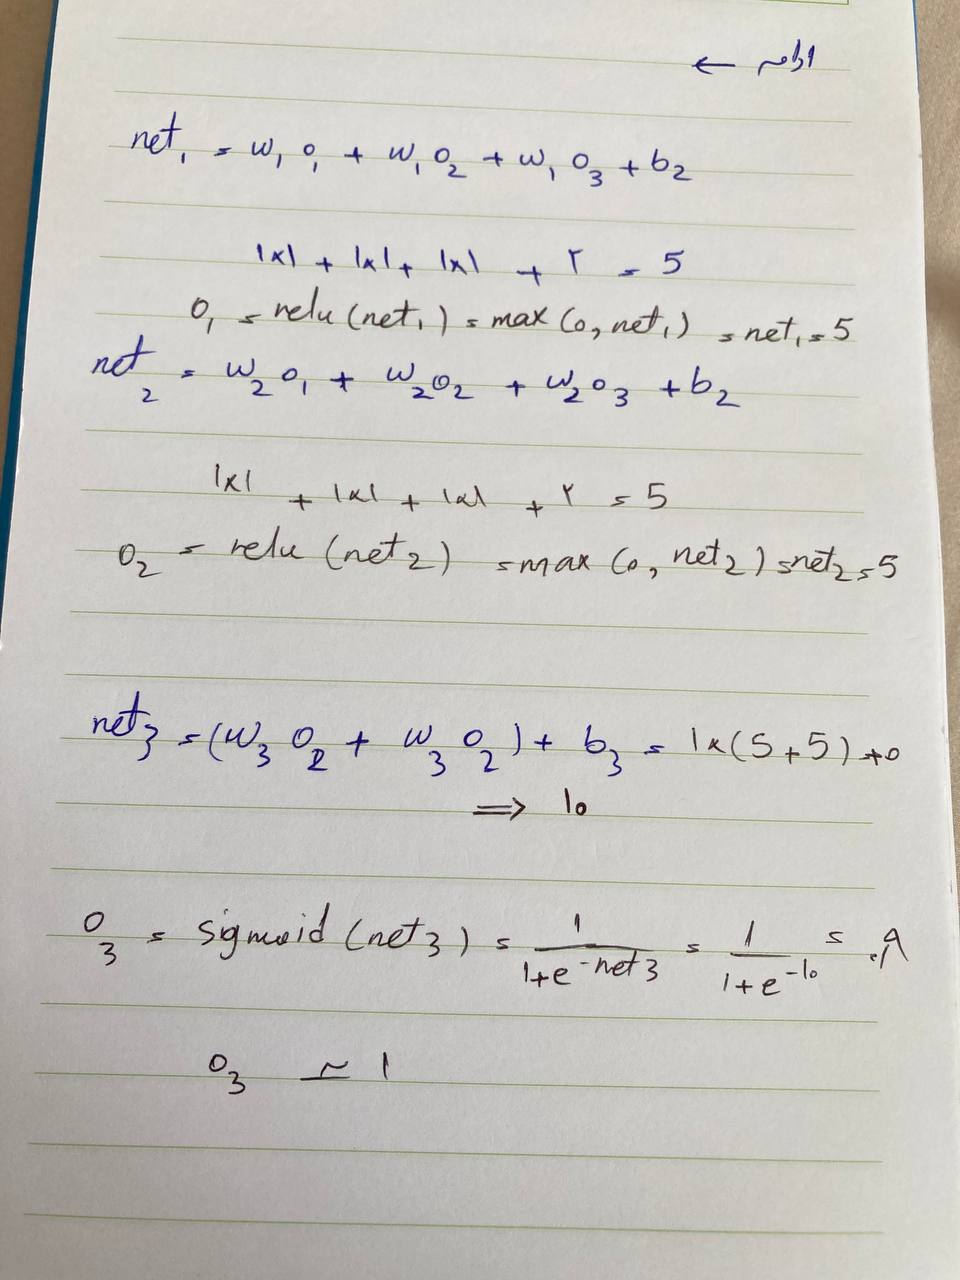 ادامه ←
net₁ = w₁ o₁ + w₁ o₂ + w₁ o₃ + b₂
1×1 + 1×1 + 1×1 + ۲ = 5
o₁ = relu (net₁) = max (0, net₁) = net₁ = 5
net₂ = w₂ o₁ + w₂ o₂ + w₂ o₃ + b₂
1×1 + 1×1 + 1×1 + ۲ = 5
o₂ = relu (net₂) = max (0, net₂) = net₂ = 5
net₃ = (w₃ o₂ + w₃ o₂) + b₃ = 1×(5+5) + 0
⇒ 10
o₃ = sigmoid (net₃) = 1/(1+e^-net₃) = 1/(1+e^-10) = .9
o₃ ≃ 1